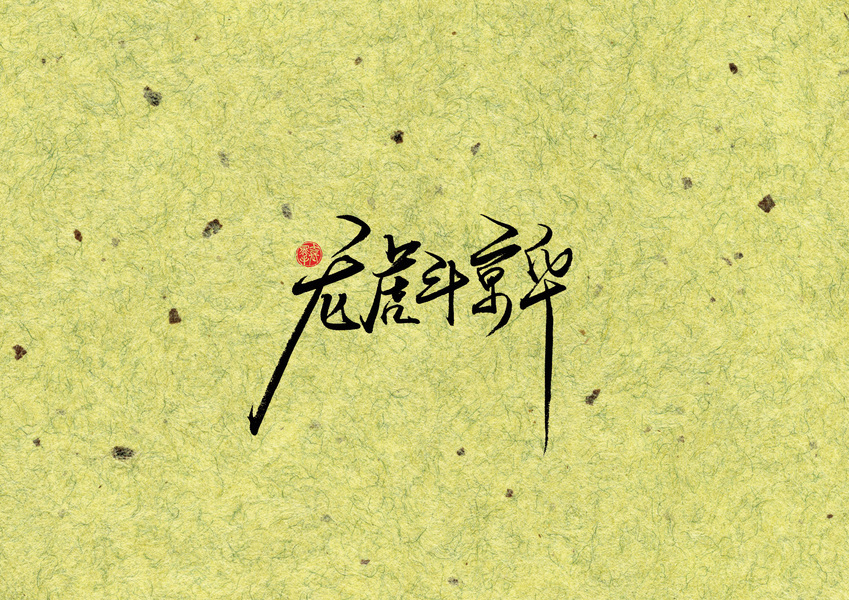 龙虎斗京华